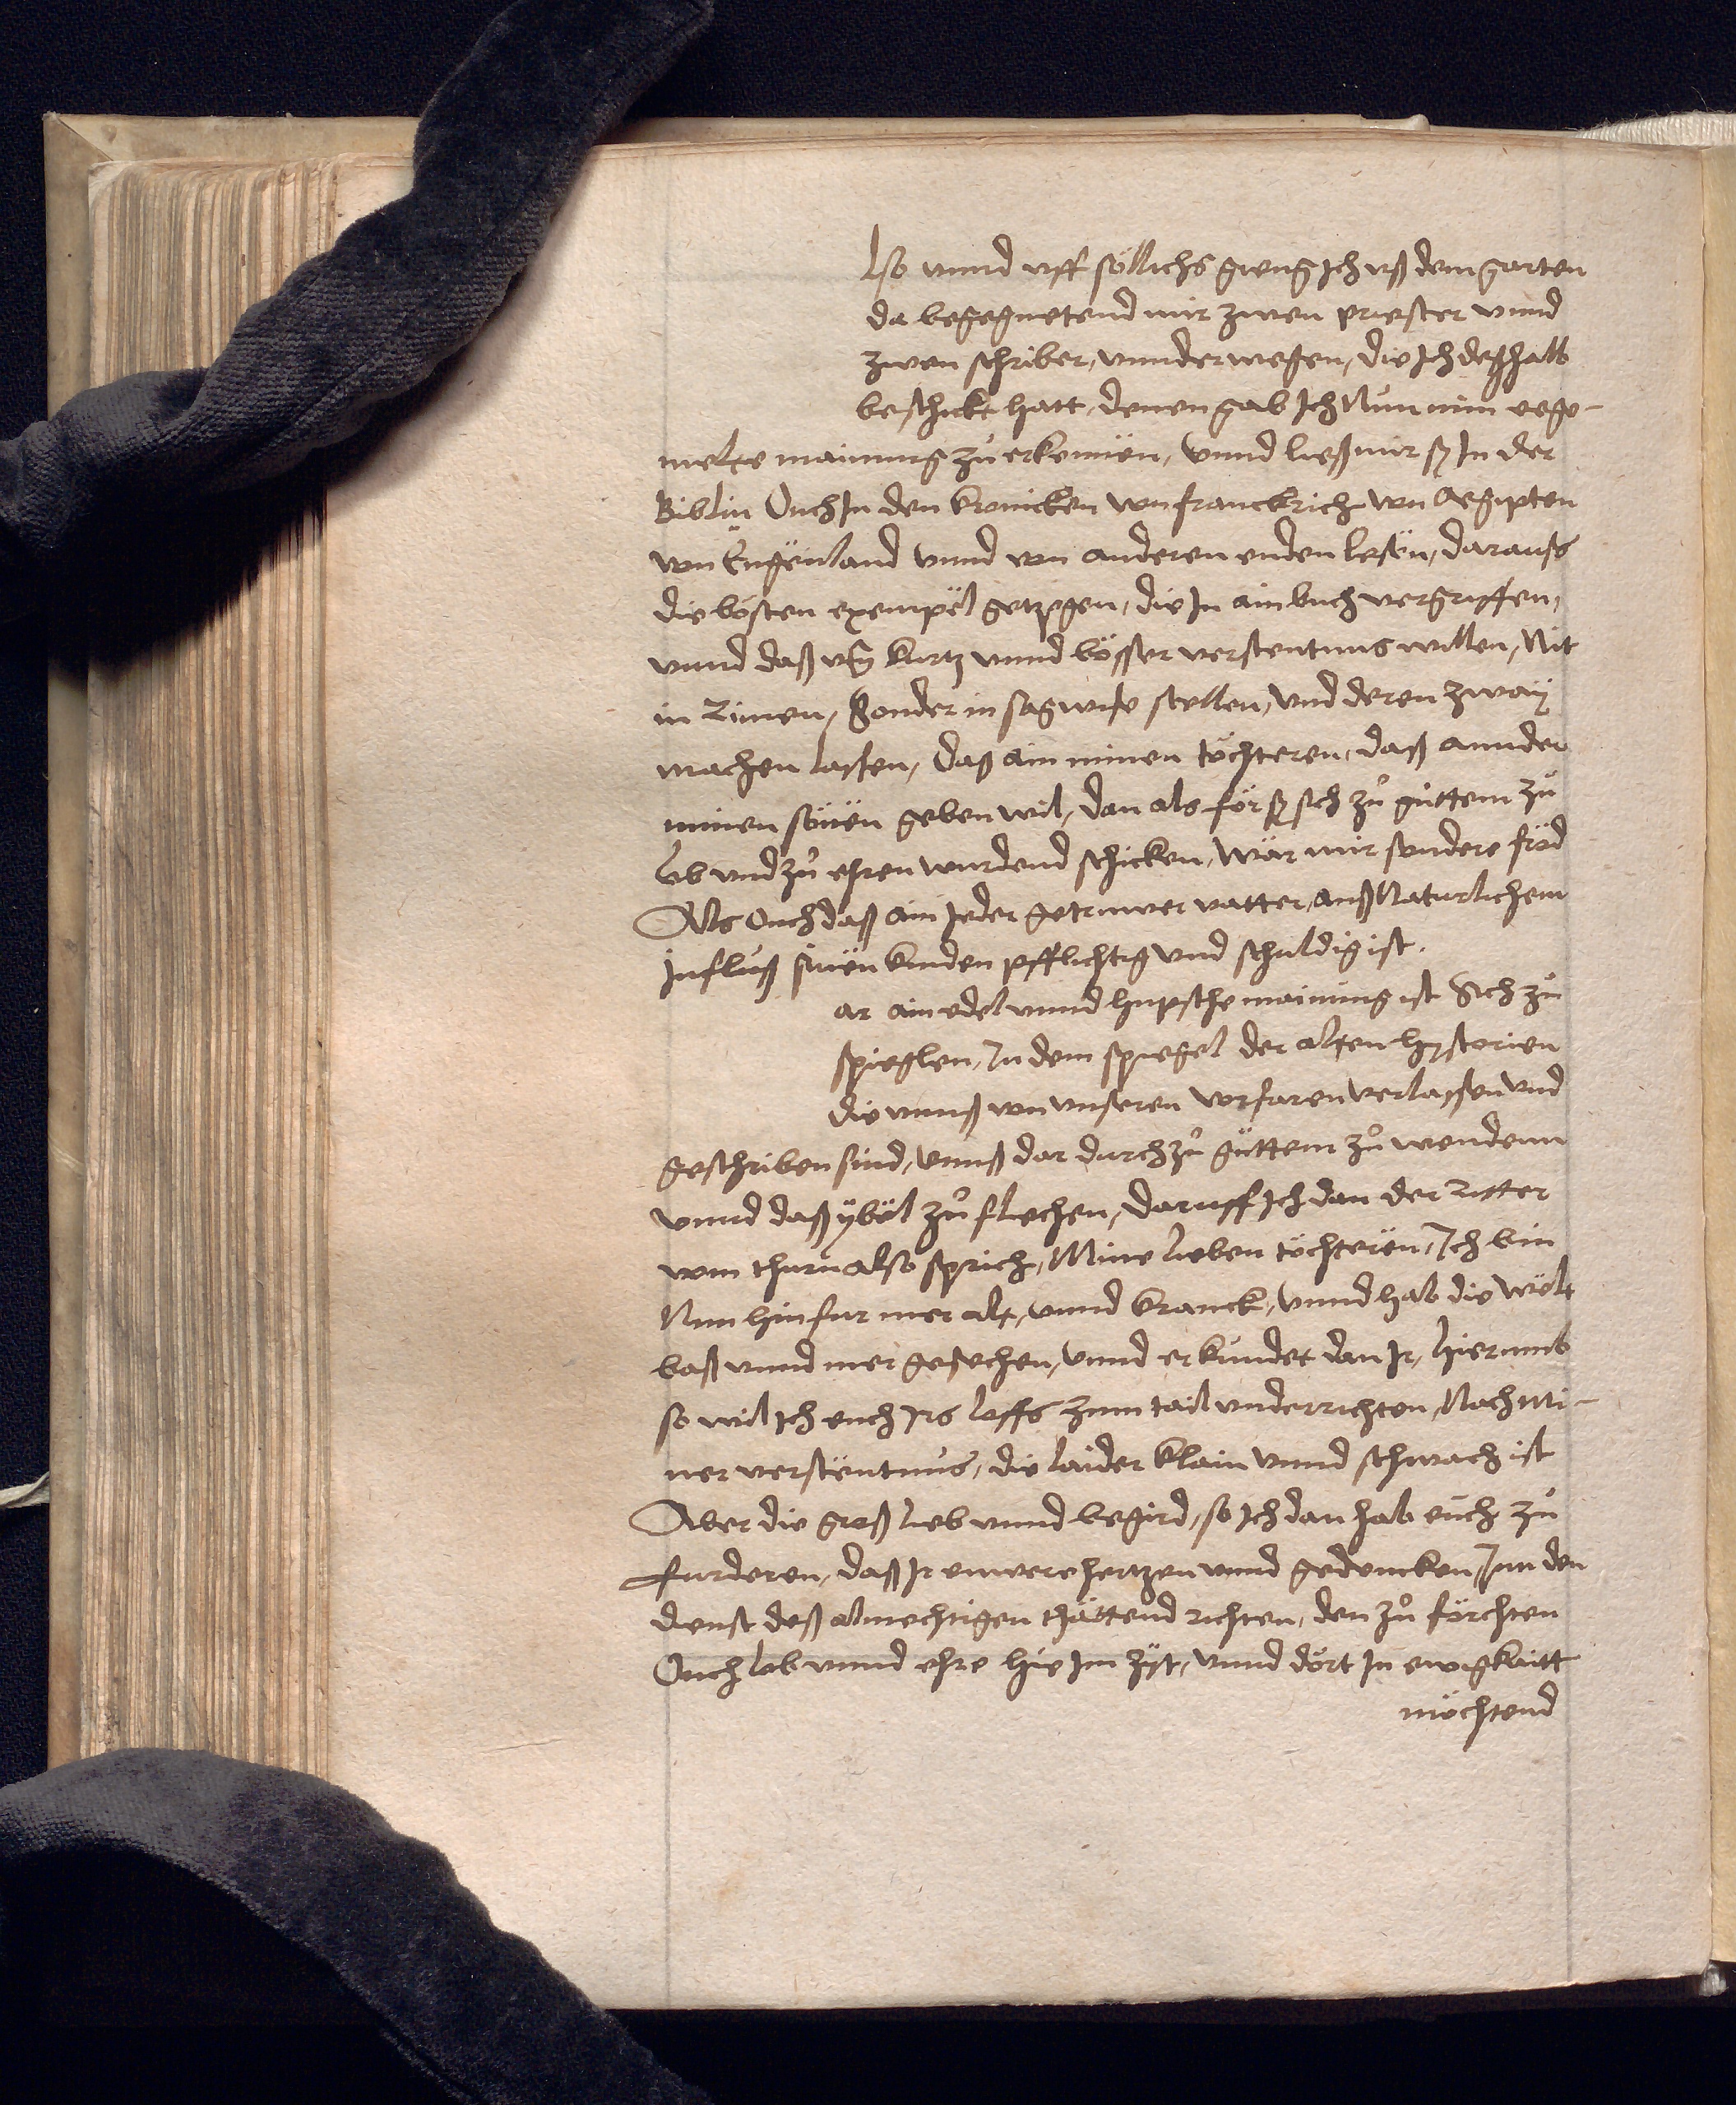 lso vnnd vff söllichs gieng Ich vß dem garten
da begegnetend mir zwen priester vnnd
zwen schriber, vnnderwegen, die Ich deßhalb
beschickt hatt, denen gab Ich Nun min
melte mainung zů erkennen, vnnd ließ mir sy In der
Biblin Ouch In den kronicken von franckrich von Aegipten
von Engenland vnnd von anderen enden lesen, darauß
die bösten exempel getzogen, die In ain buch vergriffen,
vnnd daß vm kurtz vnnd bösser verstentnus willen, Nit
in Rimen, Sonder in sag wise stellen, vnd deren zway
machen lassen, daß ain minen töchteren, daß annder
minen sönen geben wil, dan als för sy sich zů gůttem zů
lob vnd zů ehren wurdend schicken, wär mir sondere fröd
Als Ouch daß ain Jeder getruwer vatter, auß Naturlichem
Influß sinen kinden pfflichtig vnd schuldig ist.
ar ain edel vnnd hupsche mainung ist Sich zů
spieglen, In dem spiegel der alten hystorien
die vnnß von vnseren vorfaren verlassen vnd
geschriben sind, vnnß dar durch zů gůttem zů wendenn
vnnd daß ybel zů fliechen, daruff Ich dan der Ritter
vom thurn also sprich, Mine lieben töchteren, Ich bin
Nun hinfur mer alt, vnnd kranck, vnnd hab die welt
baß vnnd mer gesechen, vnnd erkundet dan Ir, hierumb
so wil Ich euch Irs loffs zum tail vnderrichten, Nach mi-
ner verstentnus, die laider klain vnnd schwach ist
Aber die groß lieb vnnd begird, so Ich dan hab euch zů
furderen, daß Ir euwere hertzen vnnd gedencken Inn den
dienst deß almechtigen thättend richten, den zů förchten
Ouch lob vnnd ehre hie Im zyt, vnnd dört In ewigkaitt
möchtend